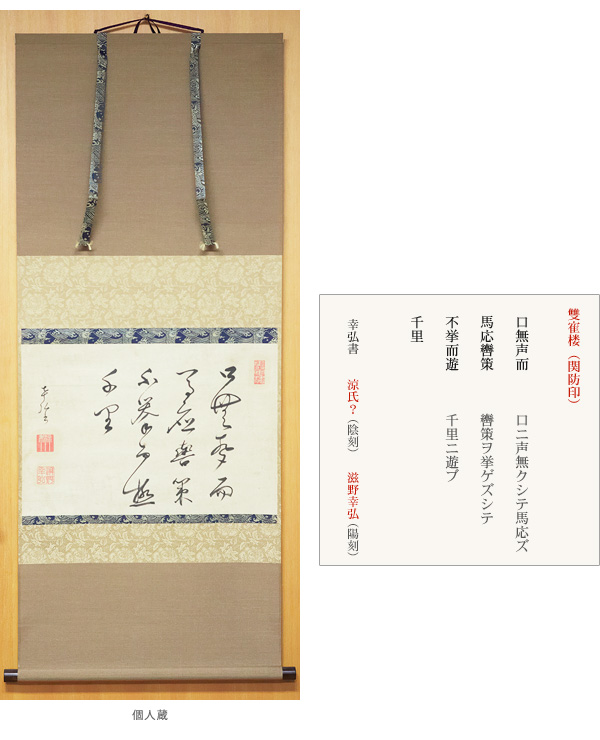 口無声而
馬応轡策
不挙而遊
千里
幸弘書
個人蔵
雙寉楼（関防印）
口無声而　口ニ声無クシテ馬応ズ
馬応轡策　轡策ヲ挙ゲズシテ
不挙而遊　千里ニ遊ブ
千里
幸弘書　涼氏？（陰刻）　滋野幸弘（陽刻）